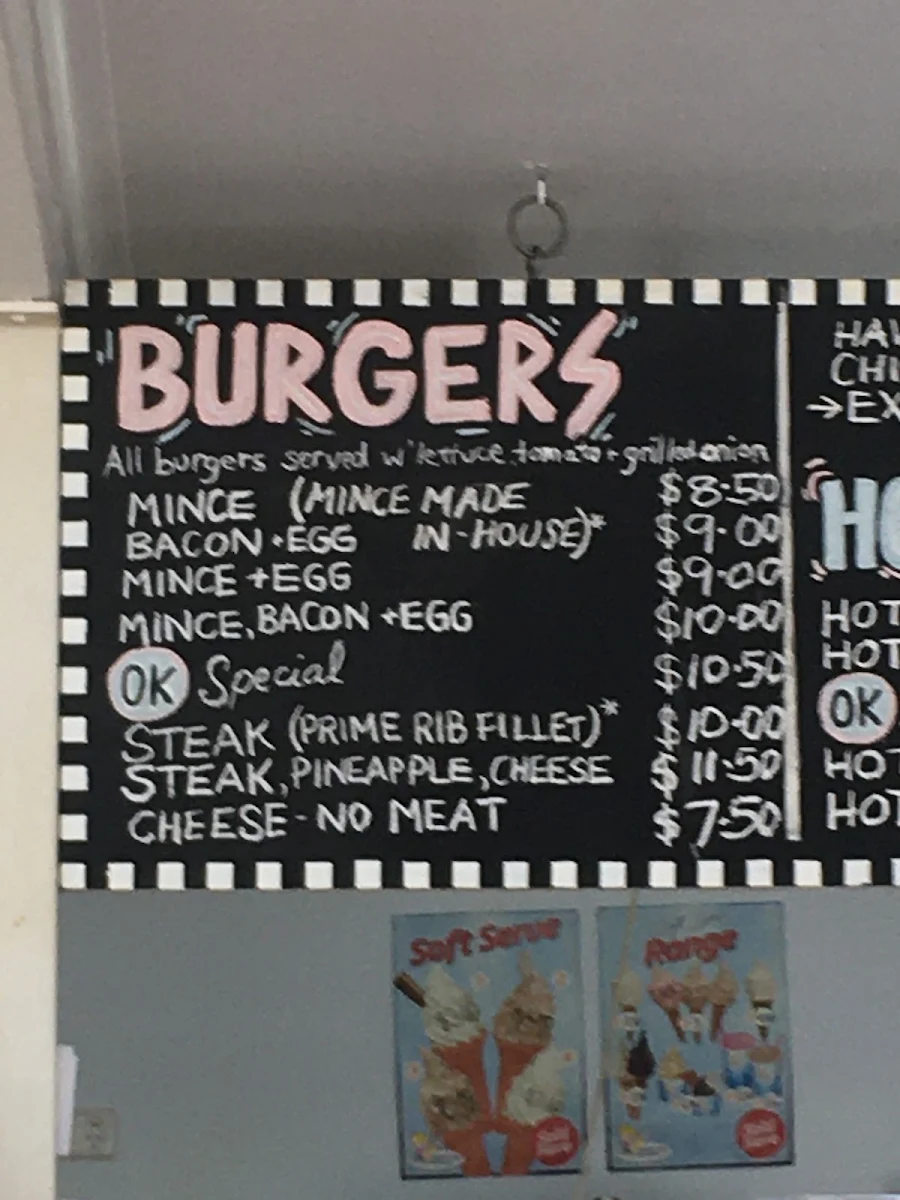 BURGERS
All burgers served w' lettuce, tomato + grilled onion
MINCE (MINCE MADE IN-HOUSE)* $8.50
BACON + EGG $9.00
MINCE + EGG $9.00
MINCE, BACON + EGG $10.00
OK Special $10.50
STEAK (PRIME RIB FILLET)* $10.00
STEAK, PINEAPPLE, CHEESE $11.50
CHEESE - NO MEAT $7.50
HAW
CHI
→EX
HO
HOT
HOT
OK
HOT
HOT
Soft Serve
Range